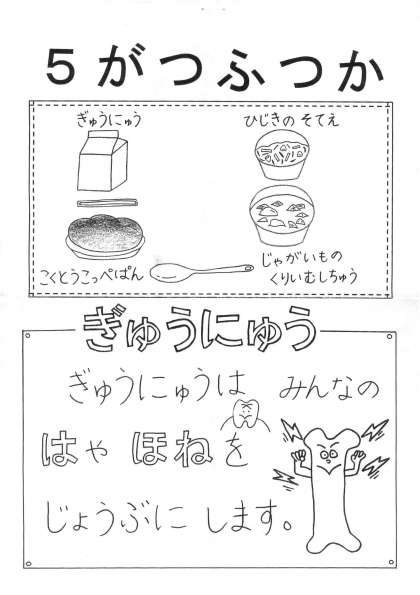 5がつふつか
ぎゅうにゅう
ひじきの そてえ
こくとうこっぺぱん
じゃがいもの
くりいむしちゅう
ぎゅうにゅう
ぎゅうにゅうは みんなの
はや ほねを
じょうぶに します。